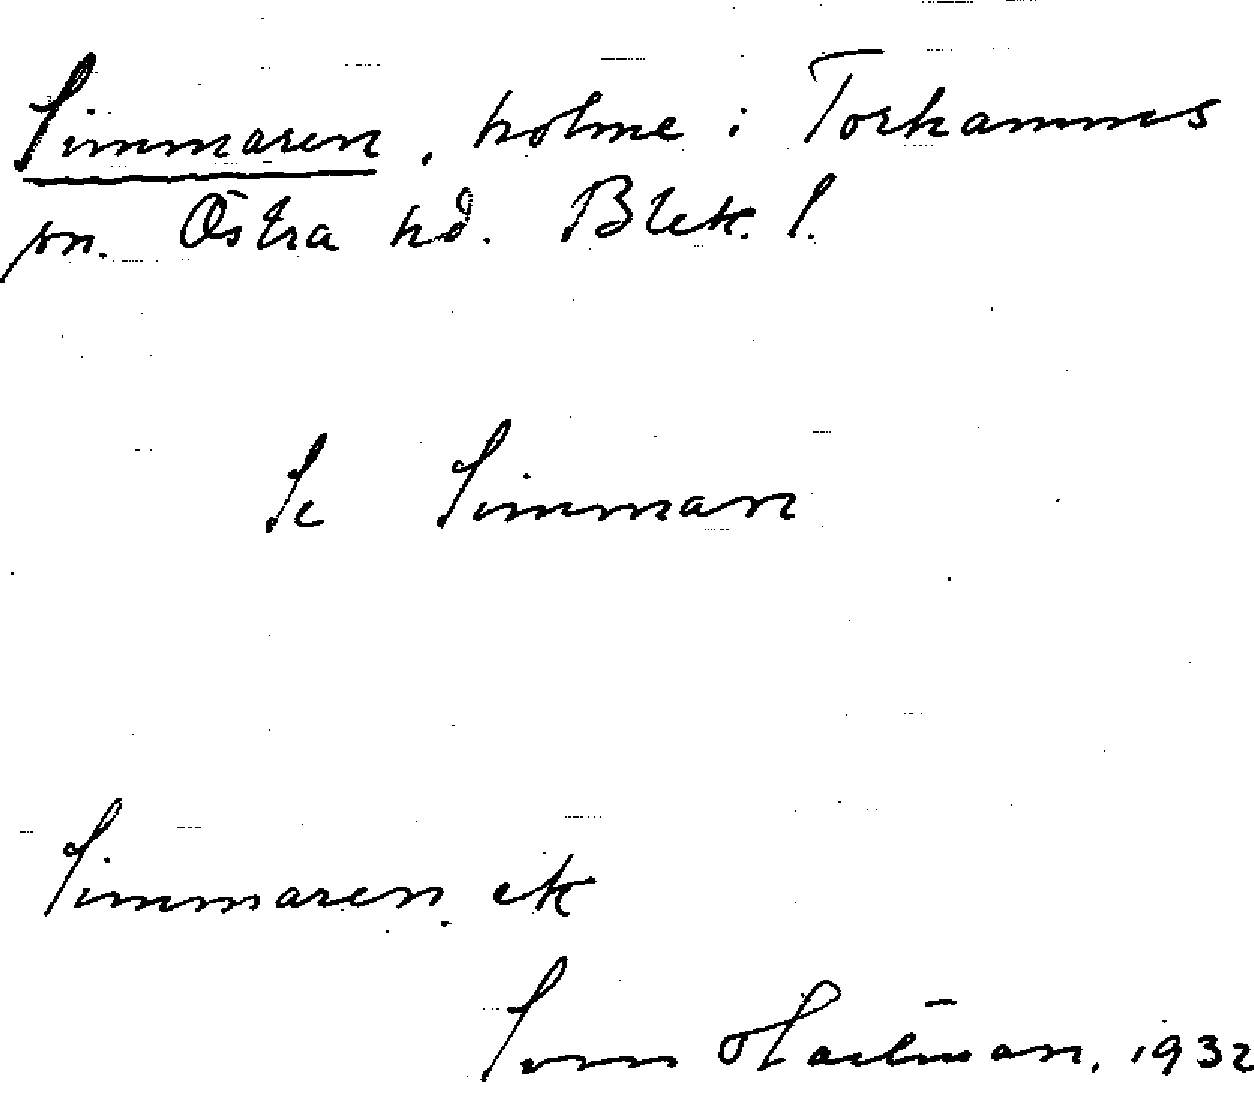 Simmaren, holme i Torhamns
sn. Östra hd. Blek. l.
Se Simmare
Simmaren. ek
Sven Hartman, 1932